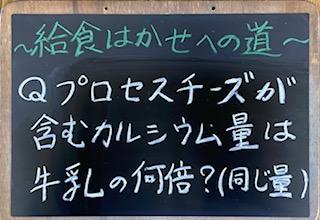 ～給食はかせへの道～
Qプロセスチーズが
含むカルシウム量は
牛乳の何倍?(同じ量)